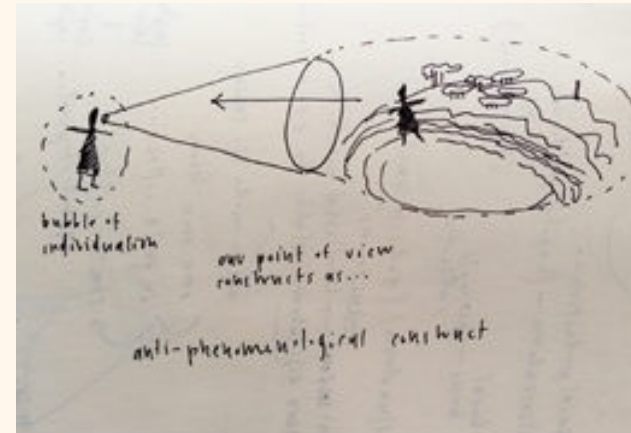 bubble of
individuation
our point of view
constructs as...
anti-phenomenological construct